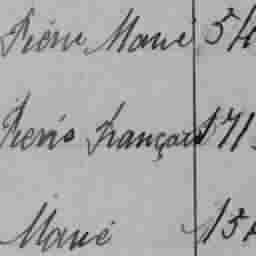 Pierre Marié 54
Pierre François 171
Marié 15